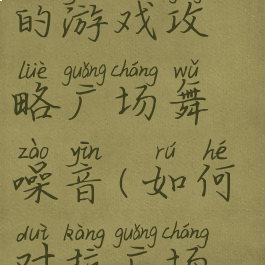 的游戏攻
lüè guǎng chǎng wǔ
略广场舞
zào yīn rú hé
噪音（如何
duì kàng guǎng chǎng
对抗广场